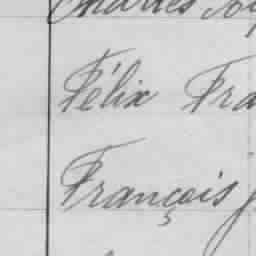 Charles
Félix Fra
François